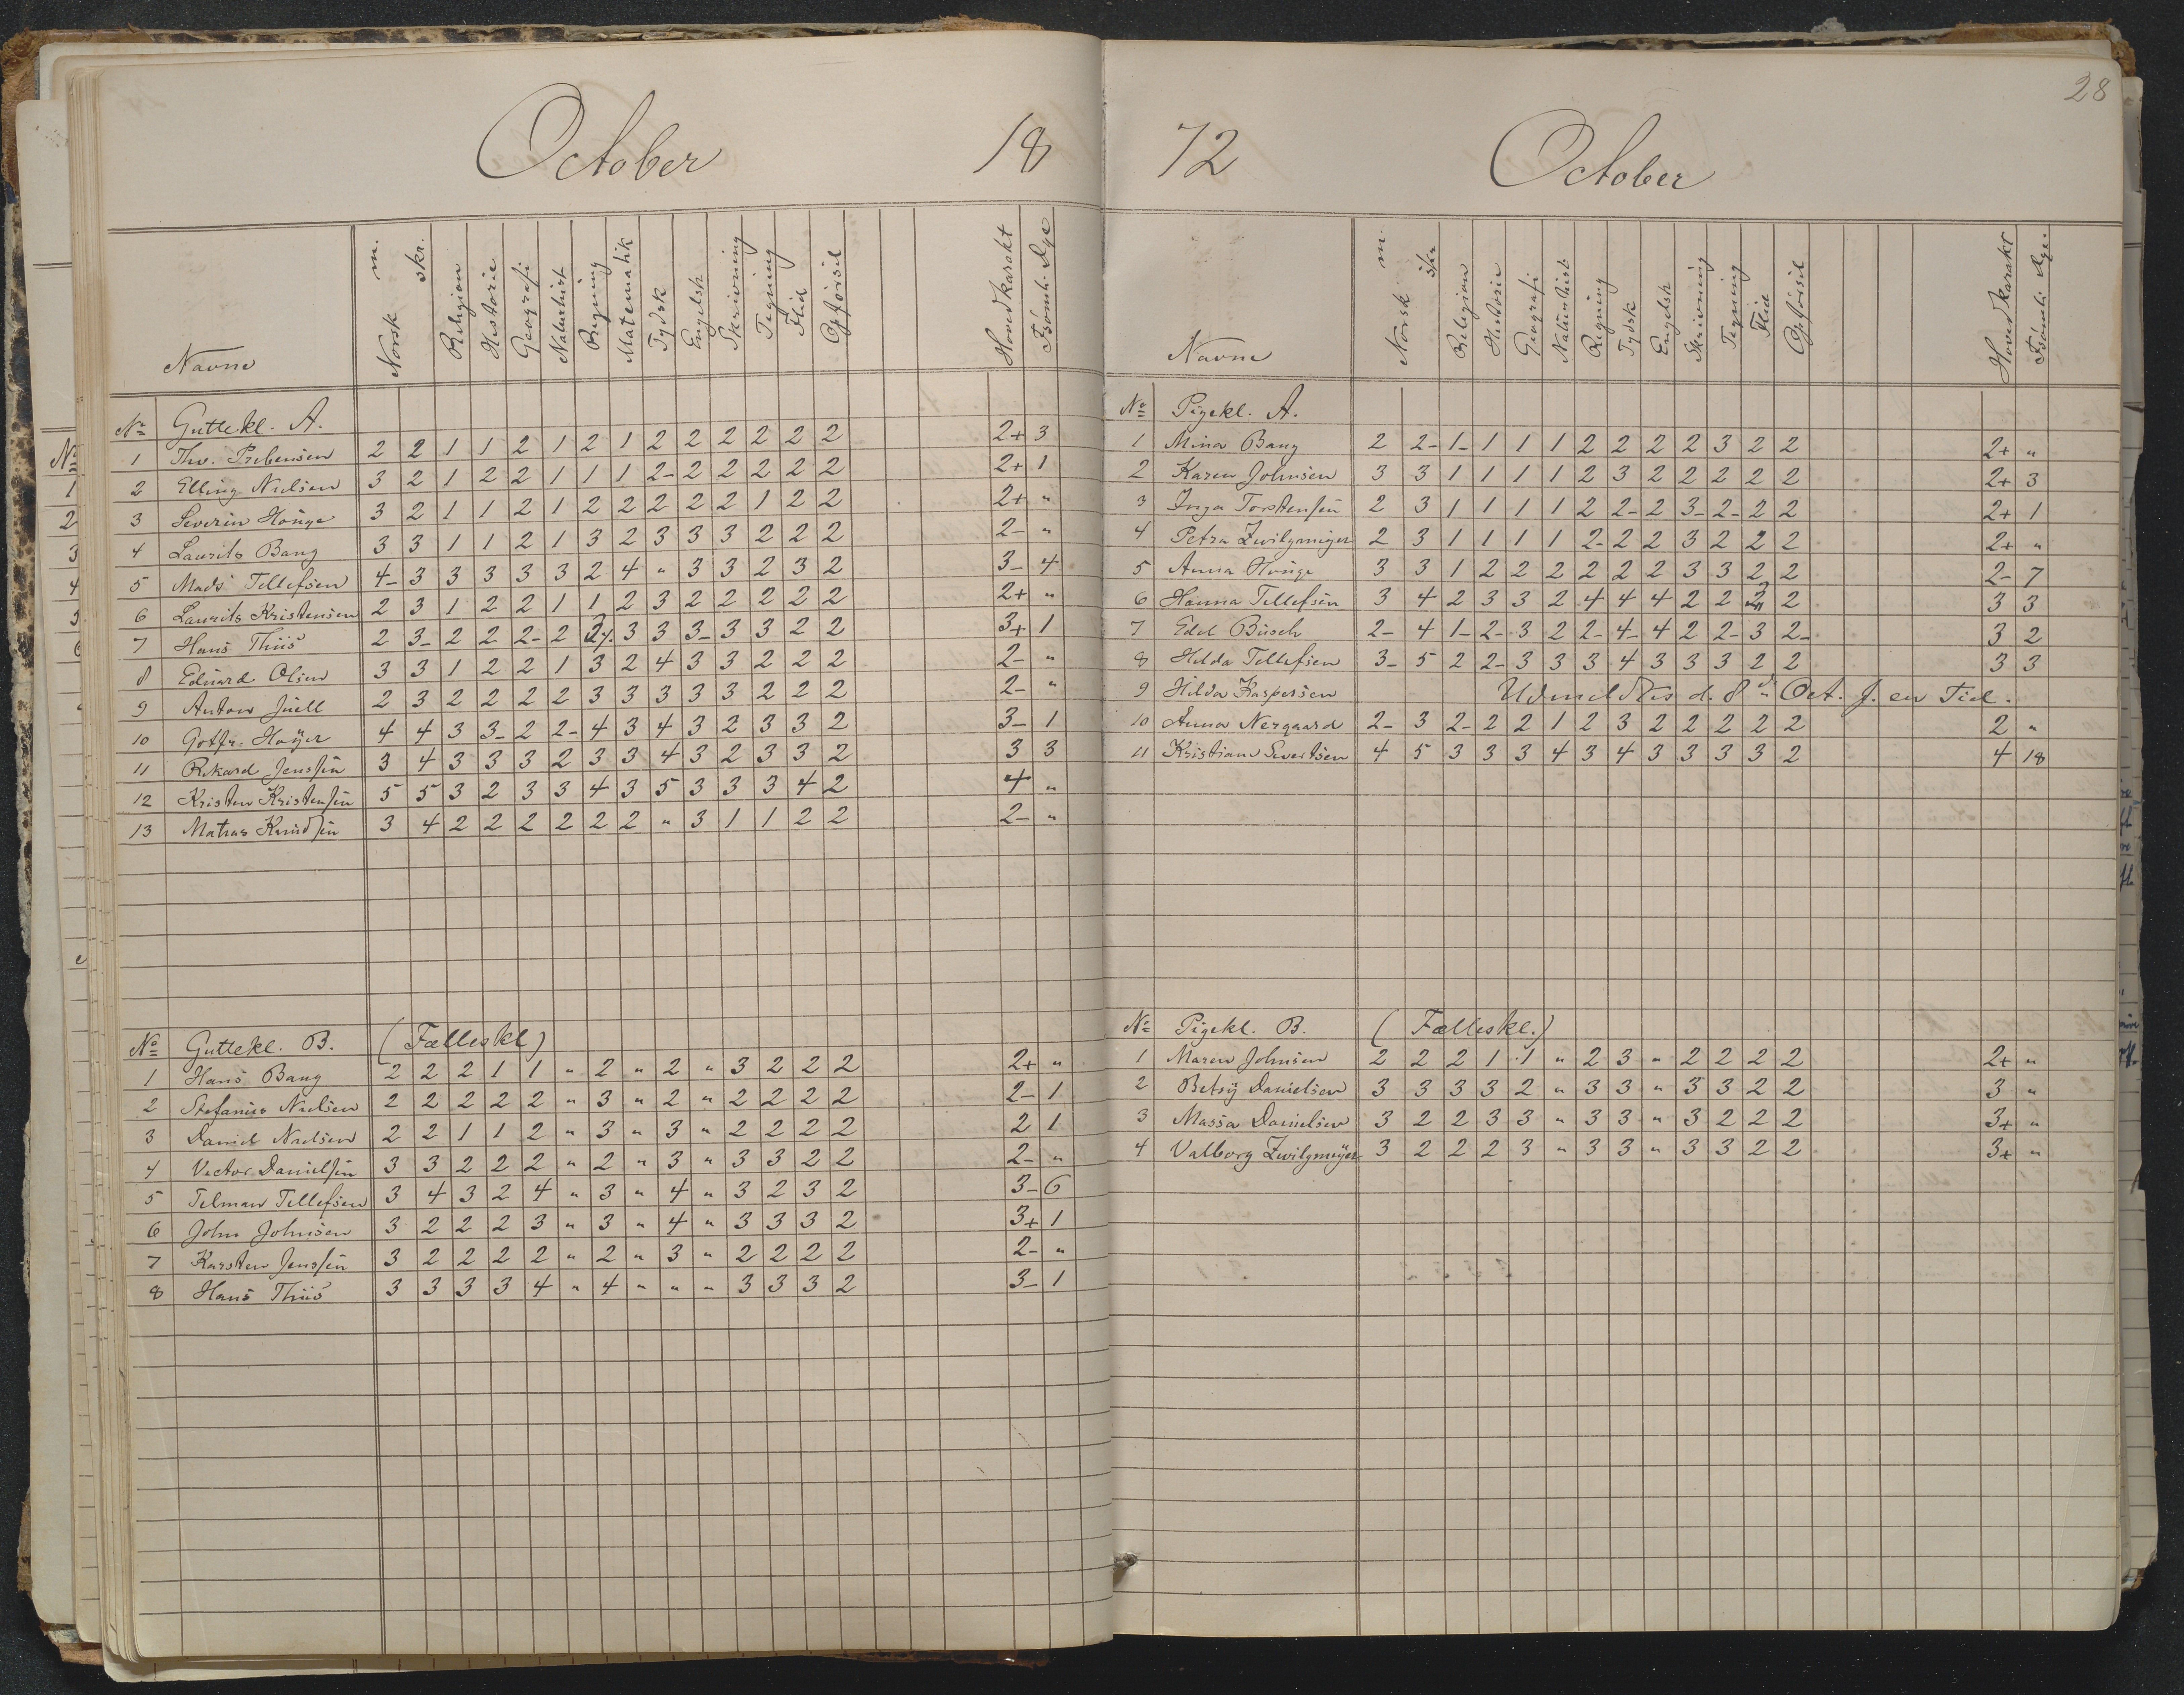 October 18
Navne Norsk m. skr. Religion Historie Geografi Naturhist Regning Matematik Tydsk Engelsk Skrivning Tegning Flid Opførsel Hovedkarakt Fsömte Dge
No Guttekl. A.
1 Thv. Prebensen 2 2 1 1 2 1 2 1 2 2 2 2 2 2 2+ 3
2 Elling Nielsen 3 2 1 2 2 1 1 1 2- 2 2 2 2 2 2+ 1
3 Severin Houge 3 2 1 1 2 1 2 2 2 2 2 1 2 2 2+ "
4 Laurits Bang 3 3 1 1 2 1 3 2 3 3 3 2 2 2 2- "
5 Mads Tellefsen 4- 3 3 3 3 3 2 4 " 3 3 2 3 2 3- 4
6 Laurits Kristensen 2 3 1 2 2 1 1 2 3 2 2 2 2 2 2+ "
7 Hans Thiis 2 3- 2 2 2- 2 3 3 3- 3 3 2 2 3+ 1
8 Eduard Olsen 3 3 1 2 2 1 3 2 4 3 3 2 2 2 2- "
9 Anton Juell 2 3 2 2 2 2 3 3 3 3 3 2 2 2 2- "
10 Gotfr. Høyer 4 4 3 3- 2 2- 4 3 4 3 2 3 3 2 3- 1
11 Rikard Jenssen 3 4 3 3 3 2 3 3 4 3 2 3 3 2 3 3
12 Kristen Kristensen 5 5 3 2 3 3 4 3 5 3 3 3 4 2 4 "
13 Matias Knudsen 3 4 2 2 2 2 2 2 " 3 1 1 2 2 2- "
No Guttekl. B. (Fælleskl)
1 Hans Bang 2 2 2 1 1 " 2 " 2 " 3 2 2 2 2+ "
2 Stefanus Nielsen 2 2 2 2 2 " 3 " 2 " 2 2 2 2 2- 1
3 Daniel Nielsen 2 2 1 1 2 " 3 " 3 " 2 2 2 2 2 1
4 Victor Danielsen 3 3 2 2 2 " 2 " 3 " 3 3 2 2 2- "
5 Telman Tellefsen 3 4 3 2 4 " 3 " 4 " 3 2 3 2 3- 6
6 John Johnsen 3 2 2 2 3 " 3 " 4 " 3 3 3 2 3+ 1
7 Karsten Jenssen 3 2 2 2 2 " 2 " 3 " 2 2 2 2 2- "
8 Hans Thiis 3 3 3 3 4 " 4 " " " 3 3 3 2 3- 1
28
72 October
Navne Norsk m. skr Religion Historie Geografi Naturhist Regning Tydsk Engelsk Skrivning Tegning Flid Opførsel Hovedkarakt Fsömte Dge.
No Pigekl. A.
1 Mina Bang 2 2- 1- 1 1 1 2 2 2 2 3 2 2 2+ "
2 Karen Johnsen 3 3 1 1 1 1 2 3 2 2 2 2 2 2+ 3
3 Inga Torstensen 2 3 1 1 1 1 2 2- 2 3- 2- 2 2 2+ 1
4 Petra Zwilgmeyer 2 3 1 1 1 1 2- 2 2 3 2 2 2 2+ "
5 Anna Houge 3 3 1 2 2 2 2 2 2 3 3 2 2 2- 7
6 Hanna Tellefsen 3 4 2 3 3 2 4 4 4 2 2 2 3 3
7 Edel Busch 2- 4 1- 2- 3 2 2- 4- 4 2 2- 3 2- 3 2
8 Hilda Tellefsen 3- 5 2 2- 3 3 3 4 3 3 3 2 2 3 3
9 Hilda Kaspersen Udmeldtes d. 8de Oct. f. en Tid.
10 Anna Nergaard 2- 3 2- 2 2 1 2 3 2 2 2 2 2 2 "
11 Kristiane Sivertsen 4 5 3 3 3 4 3 4 3 3 3 3 2 4 18
No Pigekl. B. (Fælleskl.)
1 Maren Johnsen 2 2 2 1 1 " 2 3 " 2 2 2 2 2+ "
2 Betsy Danielsen 3 3 3 3 2 " 3 3 " 3 3 2 2 3 "
3 Massa Danielsen 3 2 2 3 3 " 3 3 " 3 2 2 2 3+ "
4 Valborg Zwilgmeyer 3 2 2 2 3 " 3 3 " 3 3 2 2 3+ "